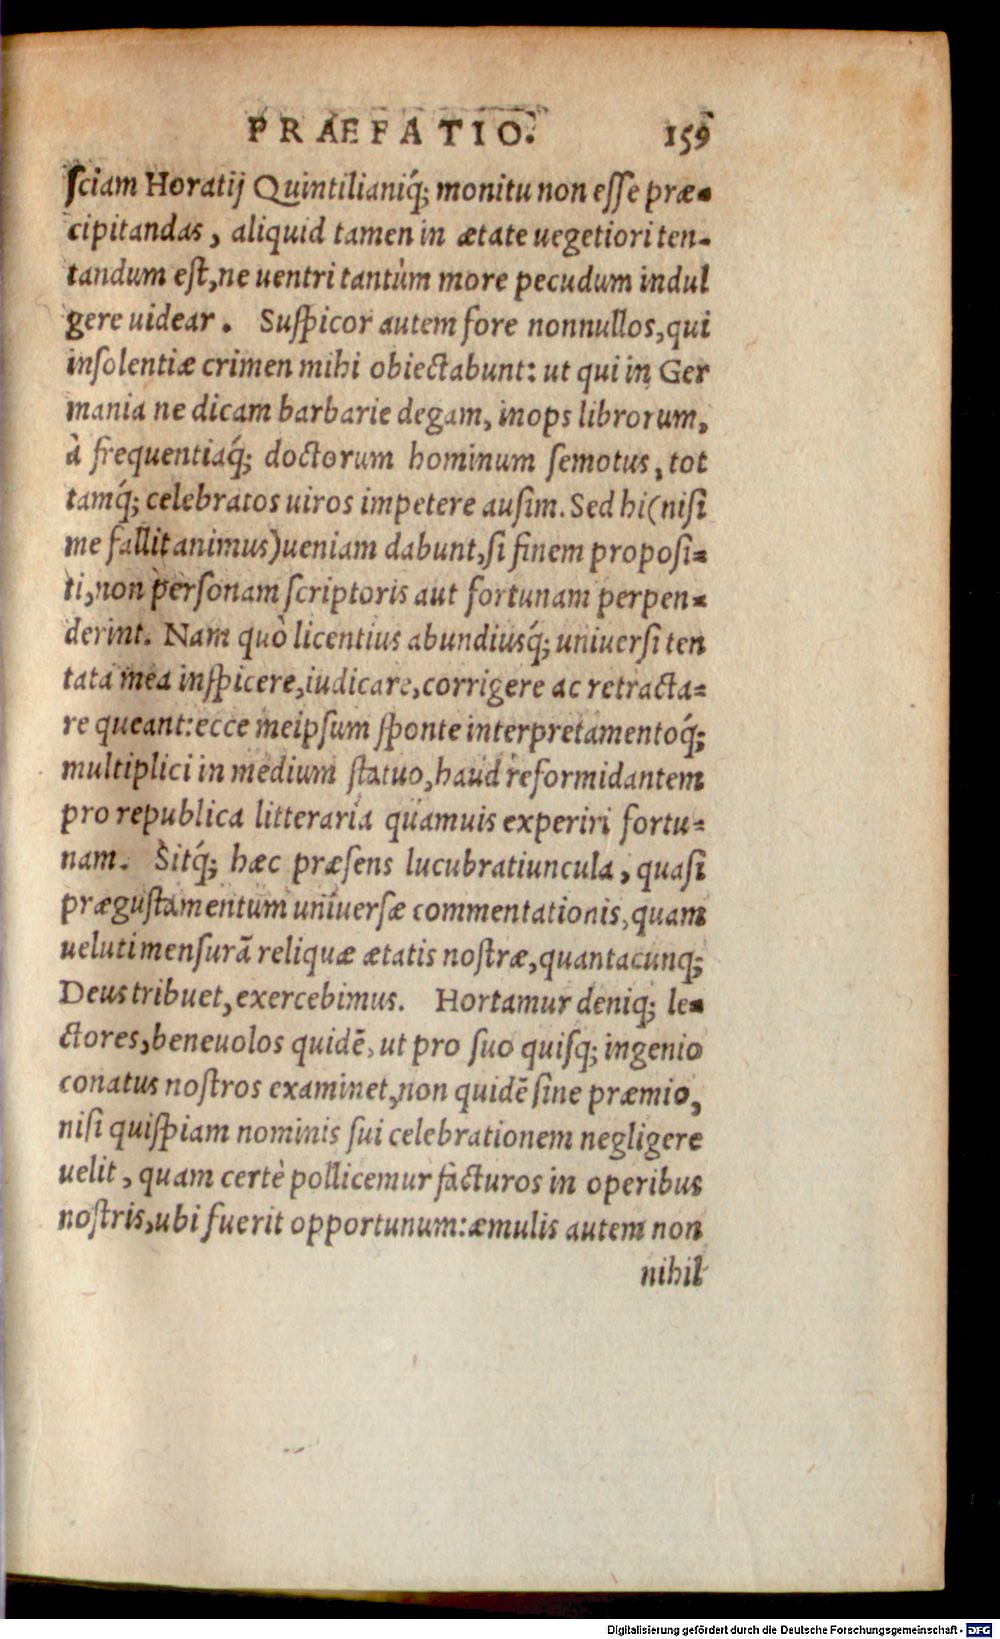 PRAEFATIO. 159
ſciam Horatij Quintilianiq́; monitu non eſſe præ-
cipitandas, aliquid tamen in ætate uegetiori ten-
tandum eſt, ne uentri tantùm more pecudum indul
gere uidear. Suſpicor autem fore nonnullos, qui
inſolentiæ crimen mihi obiectabunt: ut qui in Ger
mania ne dicam barbarie degam, inops librorum,
à frequentiaq́; doctorum hominum ſemotus, tot
tamq́; celebratos uiros impetere auſim. Sed hi (niſi
me fallit animus) ueniam dabunt, ſi finem propoſi-
ti, non perſonam ſcriptoris aut fortunam perpen-
derint. Nam quò licentius abundiusq́; uniuerſi ten
tata mea inſpicere, iudicare, corrigere ac retracta-
re queant: ecce meipſum ſponte interpretamentoq́;
multiplici in medium ſtatuo, haud reformidantem
pro republica litteraria quamuis experiri fortu-
nam. Sitq́; hæc præſens lucubratiuncula, quaſi
præguſtamentum uniuerſæ commentationis, quam
ueluti menſurã reliquæ ætatis noſtræ, quantacunq;
Deus tribuet, exercebimus. Hortamur deniq; le-
ctores, beneuolos quidẽ, ut pro ſuo quiſq; ingenio
conatus noſtros examinet, non quidẽ ſine præmio,
niſi quiſpiam nominis ſui celebrationem negligere
uelit, quam certè pollicemur facturos in operibus
noſtris, ubi fuerit opportunum: æmulis autem non
nihil
Digitalisierung gefördert durch die Deutsche Forschungsgemeinschaft - DFG